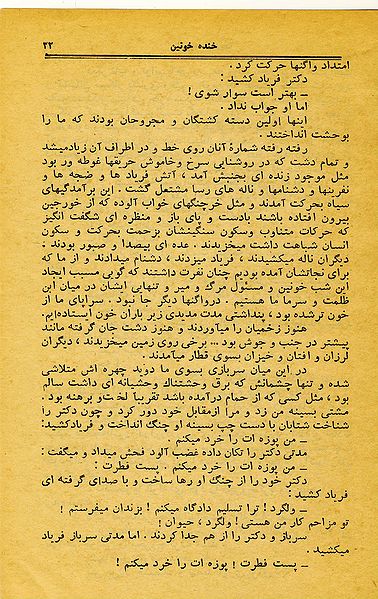 خنده خونین ۲۲
امتداد واگنها حرکت کرد .
دکتر فریاد کشید :
ـ بهتر است سوار شوی !
اما او جواب نداد .
اینها اولین دسته کشتگان و مجروحان بودند که ما را
بوحشت انداختند .
رفته رفته شمارهٔ آنان روی خط و در اطراف آن زیادمیشد
و تمام دشت که در روشنایی سرخ وخاموش حریقها غوطه ور بود
مثل موجود زنده ای بجنبش آمد ، آتش فریاد ها و ضجه ها و
نفرینها و دشنامها و ناله های رسا مشتعل گشت . این برآمدگیهای
سیاه بحرکت آمدند و مثل خرچنگهای خواب آلوده که از خورجین
بیرون افتاده باشند بادست و پای باز و منظره ای شگفت انگیز
که حرکات متناوب وسکون سنگینشان بزحمت بحرکت و سکون
انسان شباهت داشت میخزیدند . عده ای بیصدا و صبور بودند :
دیگران ناله میکشیدند ، فریاد میزدند ، دشنام میدادند و از ما که
برای نجاتشان آمده بودیم چنان نفرت داشتند که گویی مسبب ایجاد
این شب خونین و مسئول مرگ و میر و تنهایی ایشان در میان این
ظلمت و سرما ما هستیم . درواگنها دیگر جا نبود . سراپای ما از
خون ترشده بود ، پنداشتی مدت مدیدی زیر باران خون ایستاده‌ایم.
هنوز زخمیان را میآوردند و هنوز دشت جان گرفته مانند
پیشتر در جنب و جوش بود ... برخی روی زمین میخزیدند ، دیگران
لرزان و افتان و خیزان بسوی قطار میآمدند .
در این میان سربازی بسوی ما دوید چهره اش متلاشی
شده و تنها چشمانش که برق وحشتناك وحشیانه ای داشت سالم
بود ، مثل کسی که از حمام درآمده باشد تقریباً لخت‌و برهنه بود .
مشتی بسینه من زد و مرا ازمقابل خود دور کرد و چون دکتر را
شناخت شتابان با دست چپ بسینه او چنگ انداخت و فریادکشید:
ـ من پوزه ات را خرد میکنم .
مدتی دکتر را تکان داده غضب آلود فحش میداد و میگفت :
ـ من پوزه ات را خرد میکنم . پست فطرت :
دکتر خود را از چنگ او رها ساخت و با صدای گرفته ای
فریاد کشید :
ـ ولگرد ! ترا تسلیم دادگاه میکنم ! بزندان میفرستم !
تو مزاحم کار من هستی ! ولگرد ، حیوان !
سرباز و دکتر را از هم جدا کردند . اما مدتی سرباز فریاد
میکشید .
ـ پست فطرت ! پوزه ات را خرد میکنم !